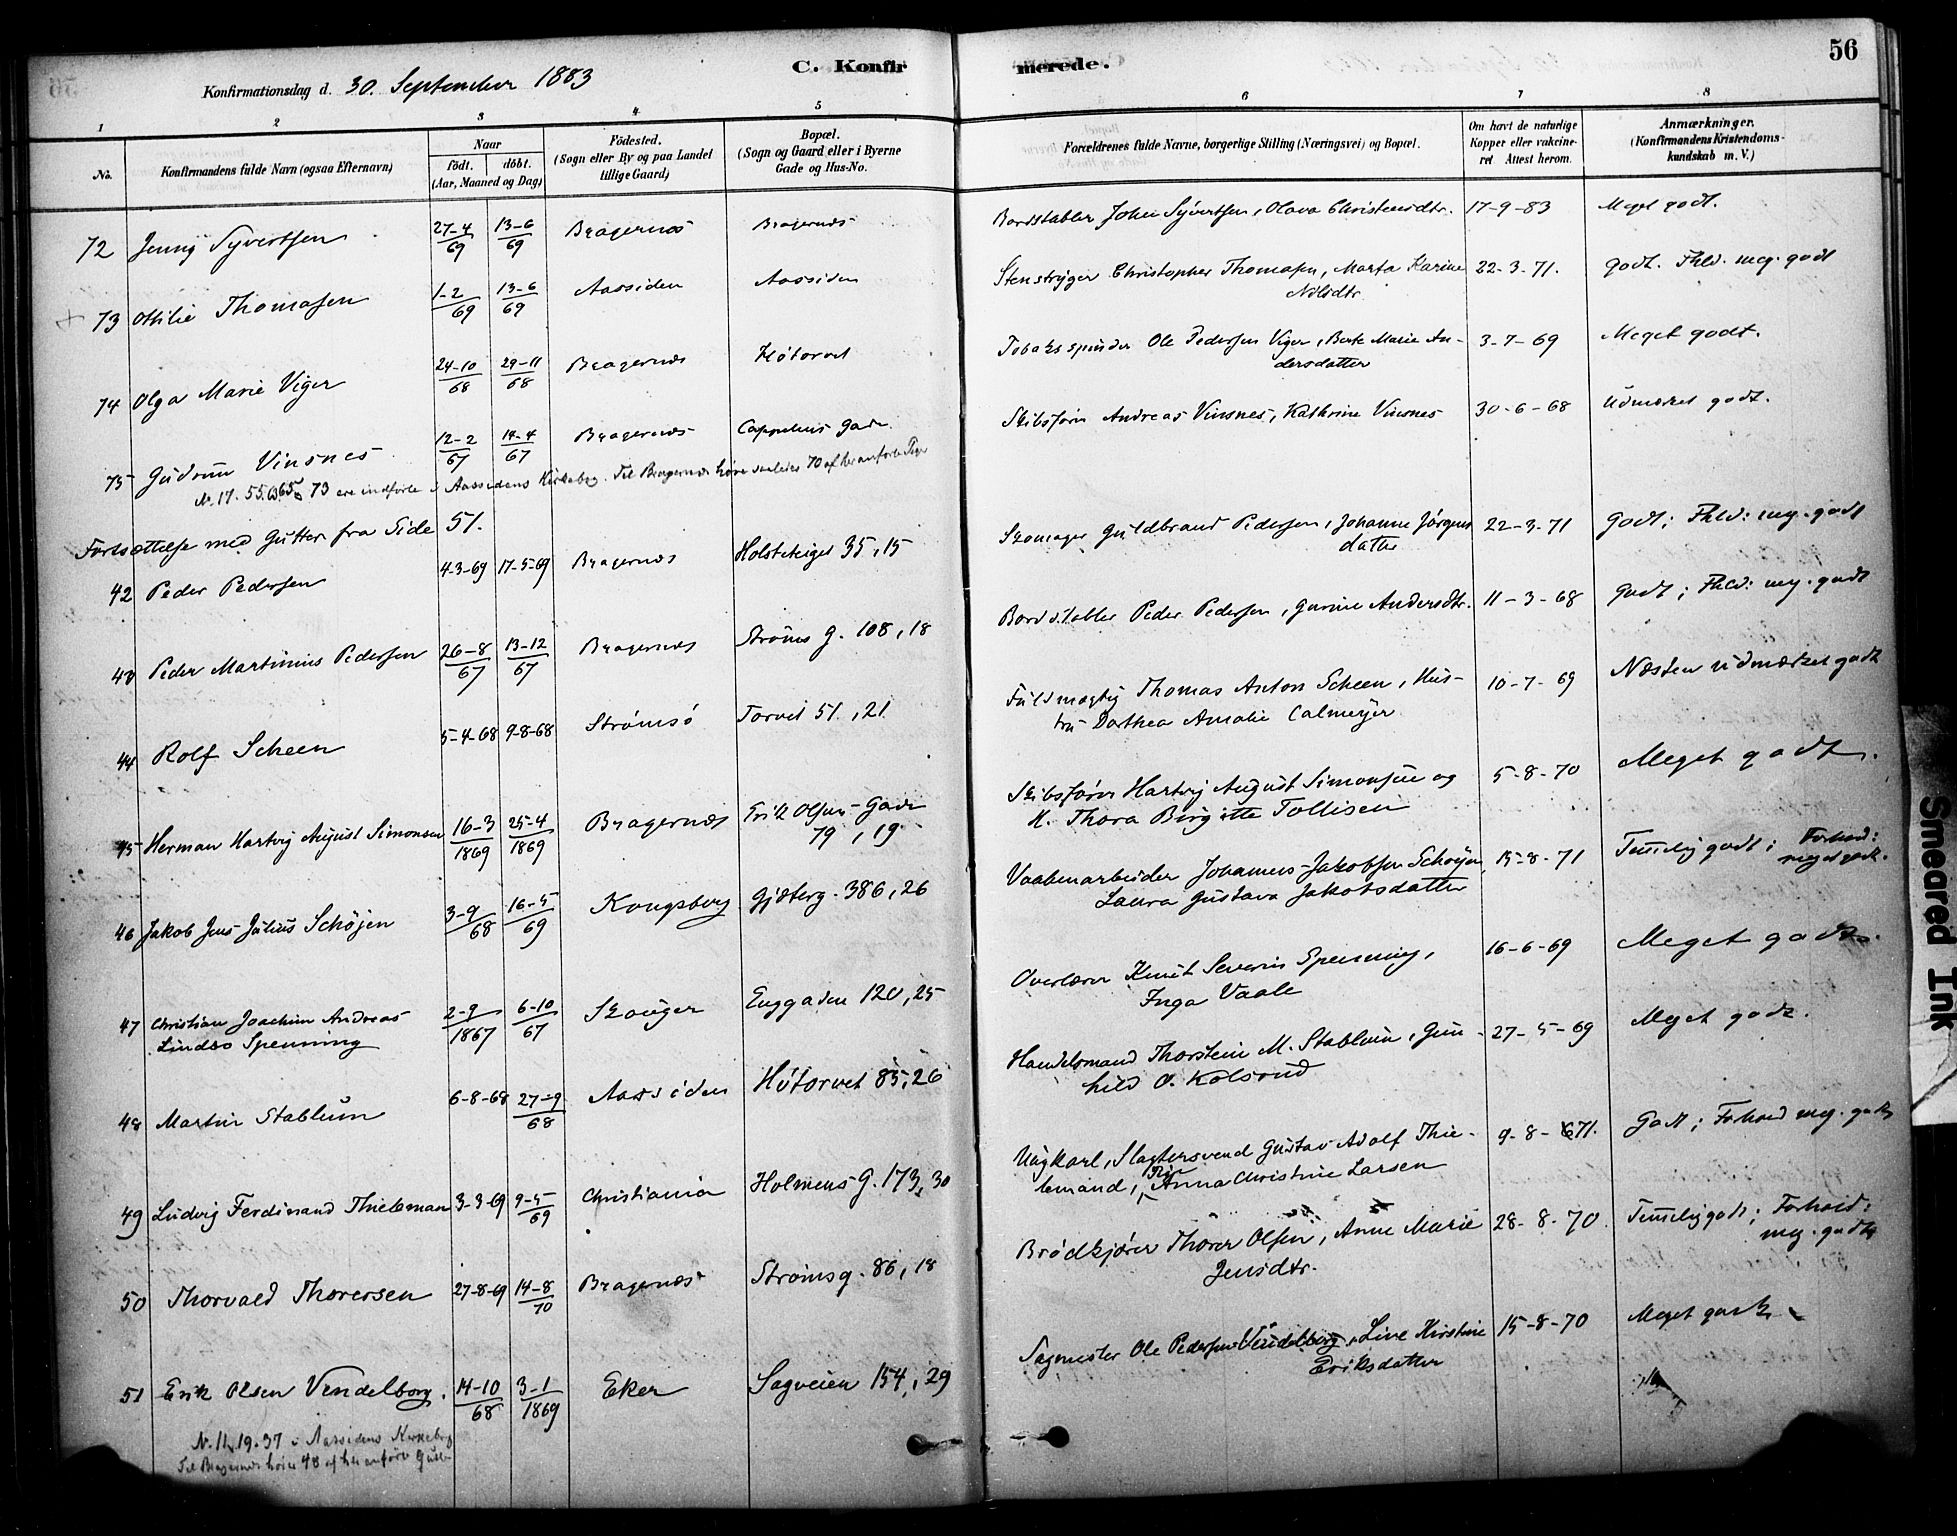 56
C. Konfirmerede.
Konfirmationsdag d. 30. September 1883
1 2 3 4 5 6 7 8
No.
Konfirmandens fulde Navn (ogsaa Efternavn)
Naar
født. døbt.
(Aar, Maaned og Dag)
Fødested.
(Sogn eller By og paa Landet
tillige Gaard)
Bopæl.
(Sogn og Gaard eller i Byerne
Gade og Hus-No.
Forældrenes fulde Navne, borgerlige Stilling (Næringsvei) og Bopæl.
Om havt de naturlige
Kopper eller vakcine-
ret. Attest herom.
Anmærkninger.
(Konfirmandens Kristendoms-
kundskab m. V.)
72 Jenny Syvertsen 27-4/69 13-6/69 Bragernæs Bragernæs Bordstabler Johan Syvertsen, Olava Christensdtr. 17-9-83 Meget godt.
73 Othilie Thomasen 1-2/69 13-6/69 Aassiden Aassiden Stenstryger Christopher Thomasen, Marta Karine 22-3-71. godt. Fhld. meg. godt
Nilsdtr
74 Olga Marie Viger 24-10/68 29-11/68 Bragernæs Høtorvet Tobakspinder Ole Pedersen Viger, Berte Marie An- 3-7-69 Meget godt.
dersdatter
75 Gudrun Vinsnes 12-2/67 14-4/67 Bragernæs Cappelens Gade Skibsfører Andreas Vinsnes, Kathrine Vinsnes 30-6-68 Udmærket godt.
No. 17. 55. 63 65 73 ere indførte i Aassidens Kirkebog. Til Bragernæs høre saaledes 70 af her anførte Piger
Fortsættelse med Gutter fra Side 51.
42 Peder Pedersen 4-3-69 17-5-69 Bragernæs Holsteteiget 35, 15 Skomager Guldbrand Pedersen, Johanne Jørgens 22-3-71 Godt; Fhld: meg. godt
datter
43 Peder Martinius Pedersen 26-8/67 13-12/67 Bragernæs Strøms g. 108, 18 Bordstabler Peder Pedersen, Gunine Andersdtr. 11-3-68 Godt; Fhld: meg. godt
44 Rolf Scheen 5-4-68 9-8-68 Strømsø Torvet 51, 21 Fuldmægtig Thomas Anton Scheen, Hus- 10-7-69 Næsten udmærket godt
tru Dorthea Amalie Calmeyer
45 Herman Hartvig August Simonsen 16-3/1869 25-4/1869 Bragernæs Erik Olsens Gade Skibsfører Hartvig August Simonsen og 5-8-70 Meget godt.
79, 19 H. Thora Birgitte Tollisen
46 Jakob Jens Julius Schøjen 3-9/68 16-5/69 Kongsberg Gjæterg. 386, 26 Vaabenarbeider Johannes Jakobsen Schøjen, 15-8-71 Temmelig godt; Forhold:
Laura Gustava Jakobsdatter meget godt.
47 Christian Joachim Andreas 2-9/1867 6-10/67 Skouger Enggaden 120, 25 Overlærer Knut Severin Spenning, 16-6-69 Meget godt.
Lindbo Spenning Inga Vaale
48 Martin Stablum 6-8-68 27-9/68 Aassiden Høtorvet 85, 26 Handelsmand Thorstein M. Stablum, Gun- 27-5-69 Meget godt.
hild O. Kolsrud
49 Ludvig Ferdinand Thieleman 3-3-69 9-5/69 Christiania Holmens G. 173, 30 Ungkarl, Slagtersvend Gustav Adolf Thie- 9-8-71. Godt; Forhold meg. godt
lemand, Pige Anna Christine Larsen
50 Thorvald Thorersen 27-8-69 14-8/70 Bragernæs Strømsg. 86, 18 Brødkjører Thorer Olsen, Anne Marie 28-8-70. Temmelig godt; Forhold:
Jensdtr. meg. godt
51 Erik Olsen Vendelborg. 14-10/68 3-1/1869 Eker Sagveien 154, 29 Sagmester Ole Pedersen Vendelborg, Line Kirstine 15-8-70 Meget godt.
Eriksdatter
N. 11, 19. 37 i Aassidens Kirkebog
Til Bragernæs høre 48 af her anførte Gutter
Smeared Ink